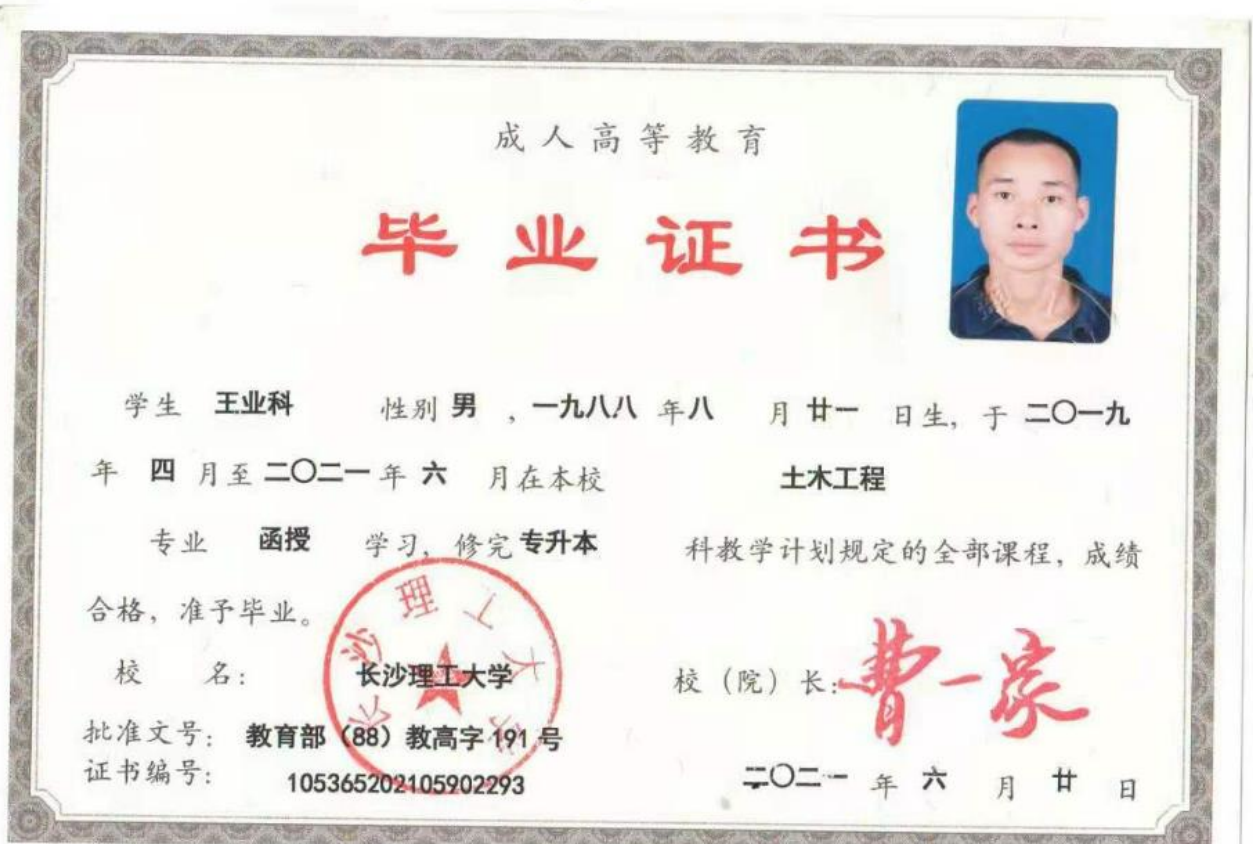 成人高等教育
毕业证书
学生 王业科 性别 男 ，一九八八 年八 月 廿一 日生，于 二〇一九
年 四 月至 二〇二一 年 六 月在本校 土木工程
专业 函授 学习，修完 专升本 科教学计划规定的全部课程，成绩
合格，准予毕业。
校 名： 长沙理工大学 校（院）长：曹一家
批准文号： 教育部（88）教高字 191 号
证书编号： 105365202105902293
二〇二一 年 六 月 廿 日
长沙理工大学